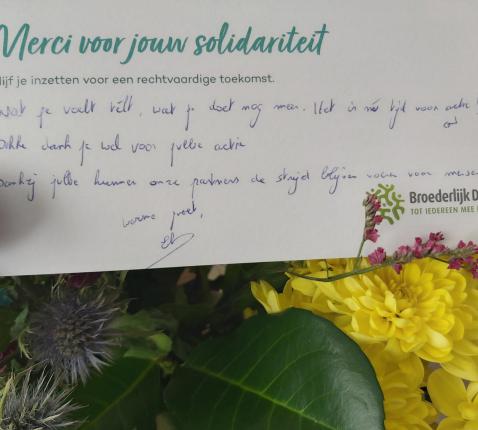 Merci voor jouw solidariteit
lijf je inzetten voor een rechtvaardige toekomst.
Wat je voelt telt, wat je doet nog meer. Het is nú tijd voor actie
Dikke dank je wel voor jullie actie
Dankzij jullie kunnen onze partners de strijd blijven voeren voor
warme groet,
Broederlijk D
TOT IEDEREEN MEE